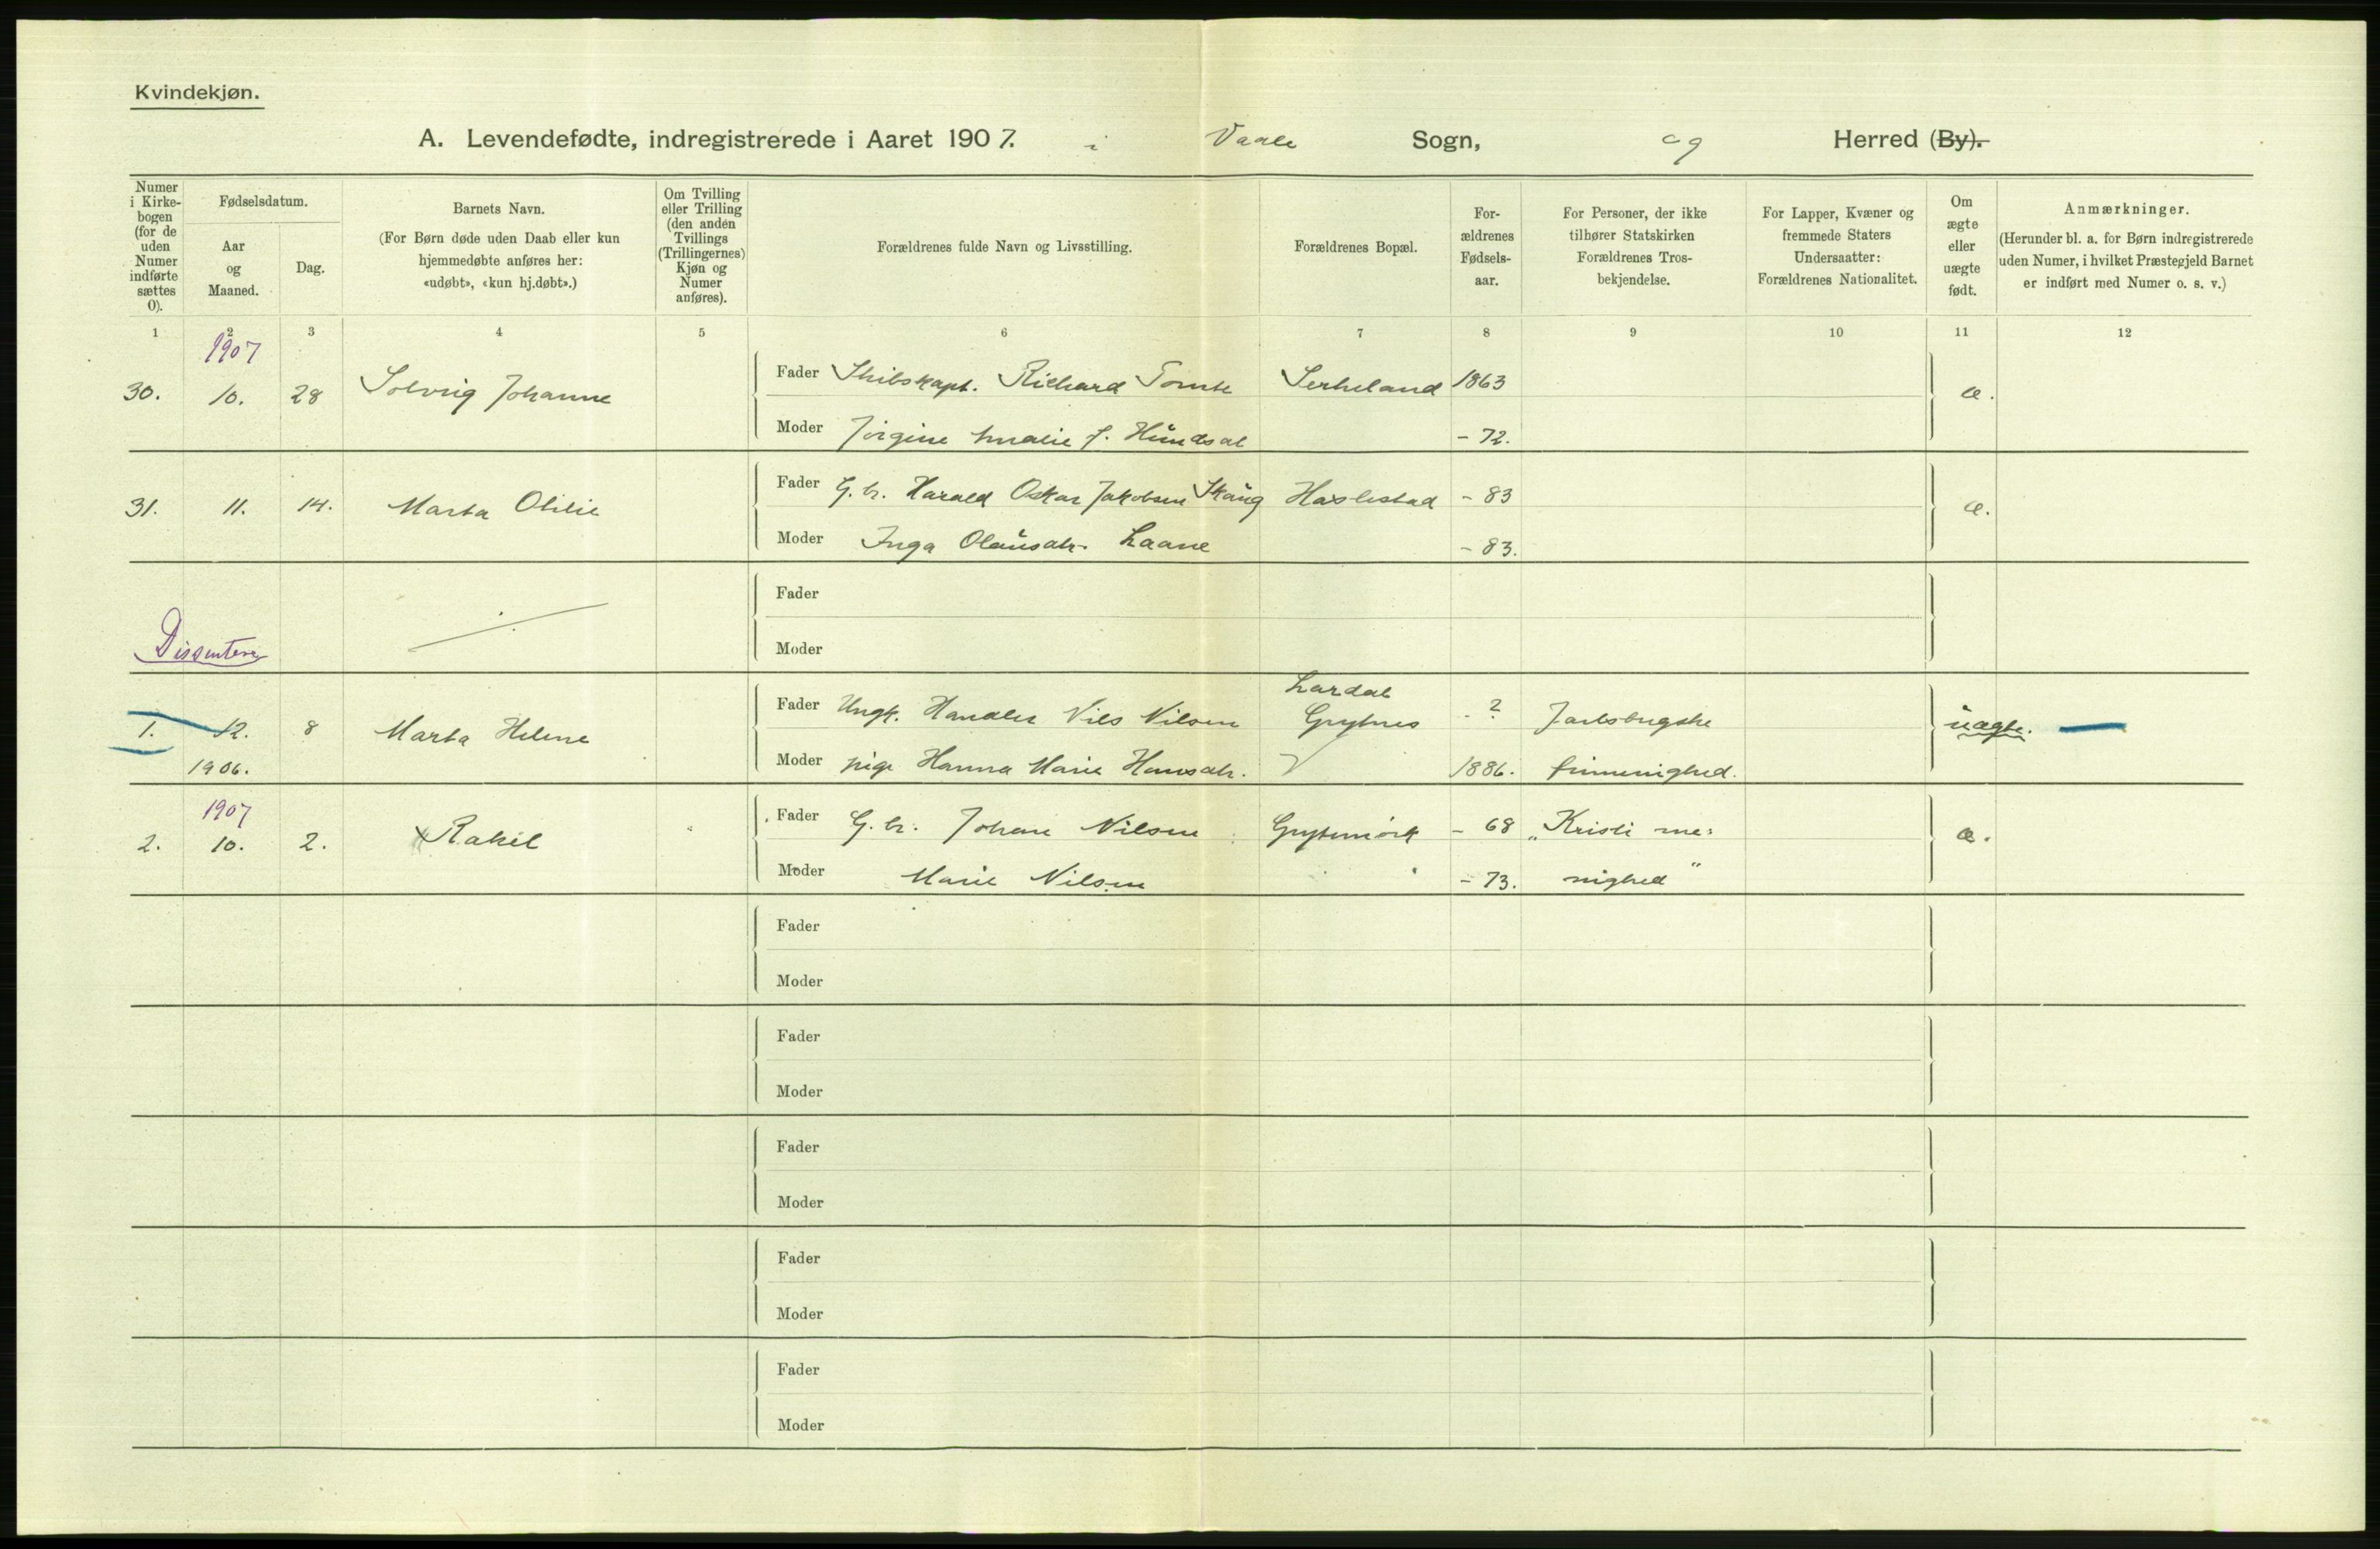 Kvindekjøn.
A. Levendefødte, indregistrerede i Aaret 1907. i Vaale Sogn, og Herred (By).
Numer i Kirkebogen (for de uden Numer indførte sættes 0).
Fødselsdatum.
Aar og Maaned.
Dag.
Barnets Navn.
(For Børn døde uden Daab eller kun hjemmedøbte anføres her: «udøbt», «kun hj.døbt».)
Om Tvilling eller Trilling (den anden Tvillings (Trillingernes) Kjøn og Numer anføres).
Forældrenes fulde Navn og Livsstilling.
Forældrenes Bopæl.
Forældrenes Fødselsaar.
For Personer, der ikke tilhører Statskirken Forældrenes Trosbekjendelse.
For Lapper, Kvæner og fremmede Staters Undersaatter: Forældrenes Nationalitet.
Om ægte eller uægte født.
Anmærkninger.
(Herunder bl. a. for Børn indregistrerede uden Numer, i hvilket Præstegjeld Barnet er indført med Numer o. s. v.)
1 2 3 4 5 6 7 8 9 10 11 12
1907
30. 10. 28 Solveig Johanne Fader Skibskapt. Richard Tomte 1863 æ.
Moder Jørgine Amalie f. -72.
31. 11. 14. Marta Otilie Fader G.br. Harald Oskar Jakobsen Skaug Haslestad -83 æ.
Moder Inga Olausdtr. Laane -83.
Fader
Dissentere
Moder
Lardal
1. 12. 8 Marta Helene Fader Ungk. Handler Nils Nilsen Grytnes - ? Jarlsbergske uægte.
1906. Moder pige Hanna Marie Hansdtr. 1886. frimenighed.
1907
2. 10. 2. Rakel Fader G.br. Johan Nilsen -68 "Kristi me= æ.
Moder Marie Nilsen -73. nighed"
Fader
Moder
Fader
Moder
Fader
Moder
Fader
Moder
Fader
Moder